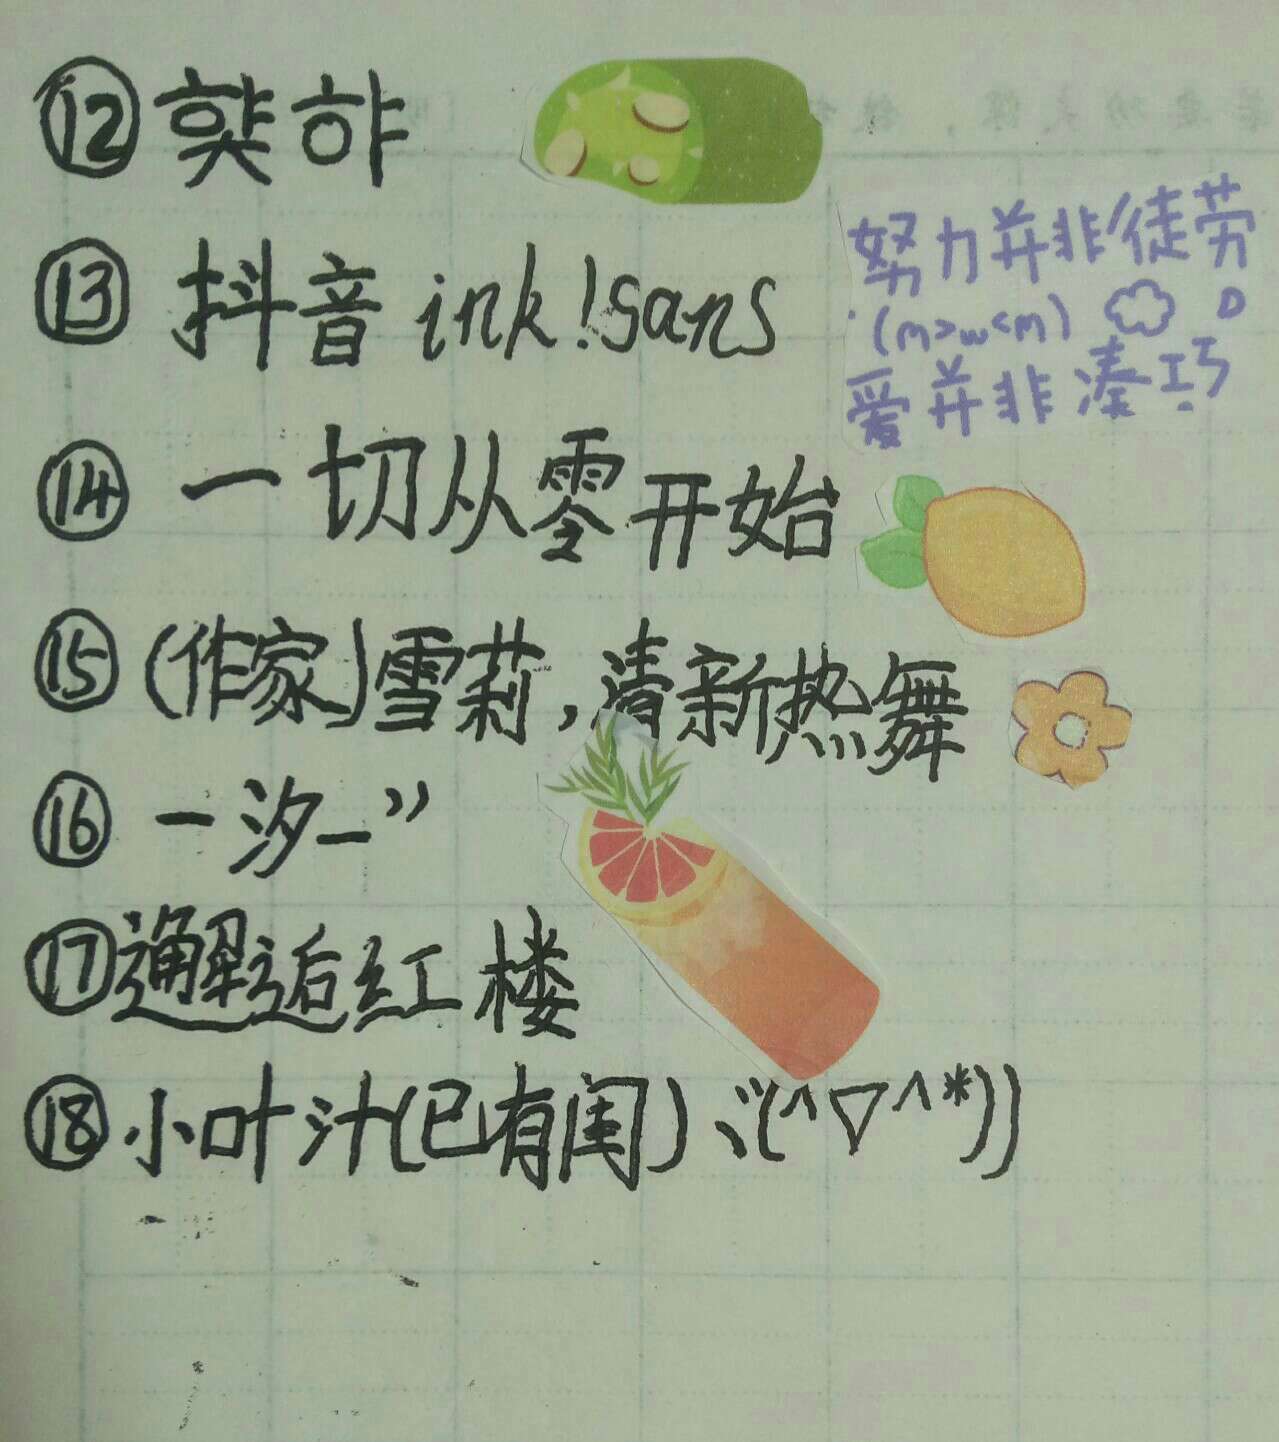 ⑫
⑬抖音 ink!sans
努力并非徒劳
(m>w<m)
爱并非凑巧
⑭一切从零开始
⑮(作家)雪莉,清新热舞
⑯一汐一”
⑰邂逅红楼
⑱小叶汁(已有闺)ヾ(^▽^*))